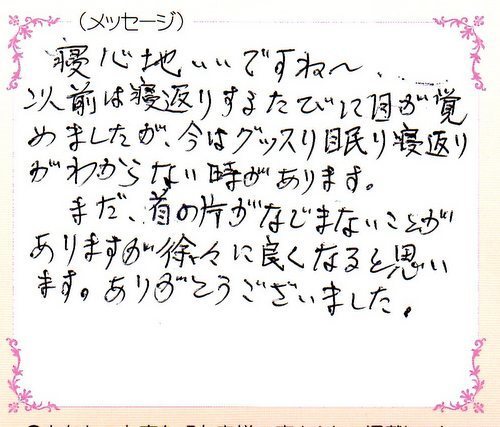 （メッセージ）
寝心地いいですね〜、
以前は寝返りするたびに目が覚
めましたが、今はグッスリ眠り寝返り
がわからない時があります。
まだ、首の片がなじまないことが
ありますが徐々に良くなると思い
ます。ありがとうございました。